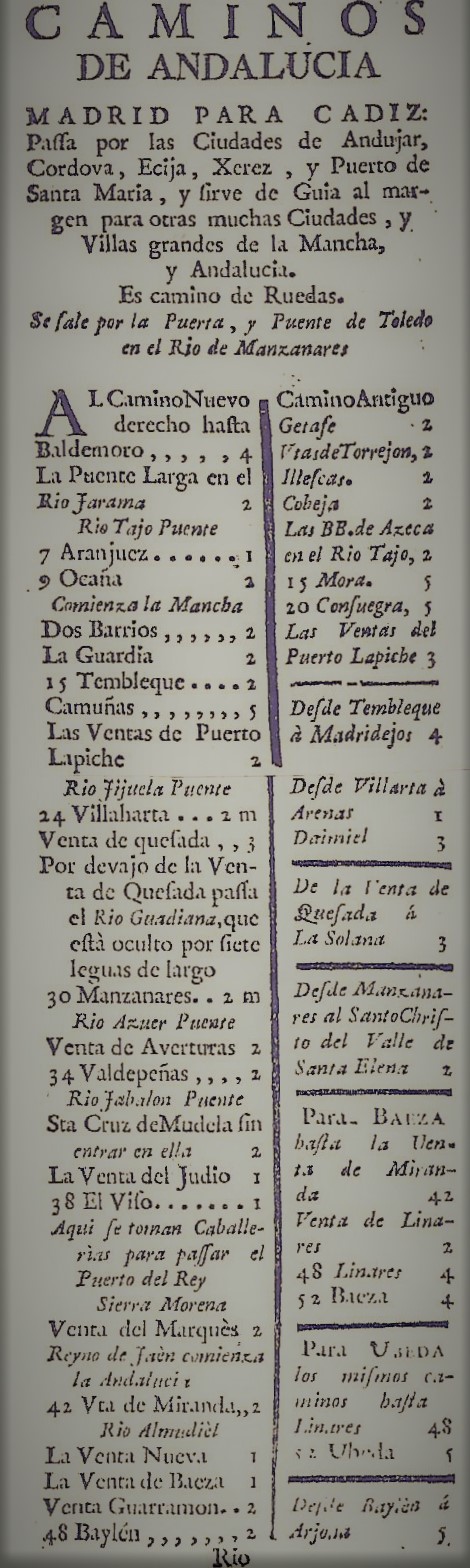 CAMINOS
DE ANDALUCIA
MADRID PARA CADIZ:
Paſſa por las Ciudades de Andujar,
Cordova, Ecija, Xerez, y Puerto de
Santa Maria, y ſirve de Guia al mar-
gen para otras muchas Ciudades, y
Villas grandes de la Mancha,
y Andalucia.
Es camino de Ruedas.
Se ſale por la Puerta, y Puente de Toledo
en el Rio de Manzanares
AL Camino Nuevo
derecho haſta
Baldemoro , , , , , 4
La Puente Larga en el
Rio Jarama 2
Rio Tajo Puente
7 Aranjuez . . . . . . . 1
9 Ocaña 2
Comienza la Mancha
Dos Barrios , , , , , , 2
La Guardia 2
15 Tembleque . . . . 2
Camuñas , , , , , , , , 5
Las Ventas de Puerto
Lapiche 2
Rio Jijuela Puente
24 Villaharta . . . 2 m
Venta de queſada , , 3
Por devajo de la Ven-
ta de Queſada paſſa
el Rio Guadiana, que
eſtà oculto por ſiete
leguas de largo
30 Manzanares. . 2 m
Rio Azuer Puente
Venta de Averturas 2
34 Valdepeñas , , , , 2
Rio Jabalon Puente
Sta Cruz de Mudela ſin
entrar en ella 2
La Venta del Judio 1
38 El Viſo. . . . . . . . 1
Aqui ſe toman Caballe-
rias para paſſar el
Puerto del Rey
Sierra Morena
Venta del Marquès 2
Reyno de Jaèn comienza
la Andaluci
42 Vta de Miranda,, 2
Rio Almudièl
La Venta Nueva 1
La Venta de Baeza 1
Venta Guarramon. . 2
48 Baylén , , , , , , , 2
Camino Antiguo
Getafe 2
Vtas de Torrejon, 2
Illeſcas. 2
Cobeja 2
Las BB. de Azeca
en el Rio Tajo, 2
15 Mora. 5
20 Conſuegra, 5
Las Ventas del
Puerto Lapiche 3
Deſde Tembleque
à Madridejos 4
Deſde Villarta à
Arenas 1
Daimiel 3
De la Venta de
Queſada á
La Solana 3
Deſde Manzana-
res al Santo Chriſ-
to del Valle de
Santa Elena 2
Para BAEZA
haſta la Ven-
ta de Miran-
da 42
Venta de Lina-
res 2
48 Linares 4
52 Baeza 4
Para UBEDA
los miſmos ca-
minos haſta
Linares 48
52 Ubeda 5
Deſde Baylèn á
Arjona 5.
Rio